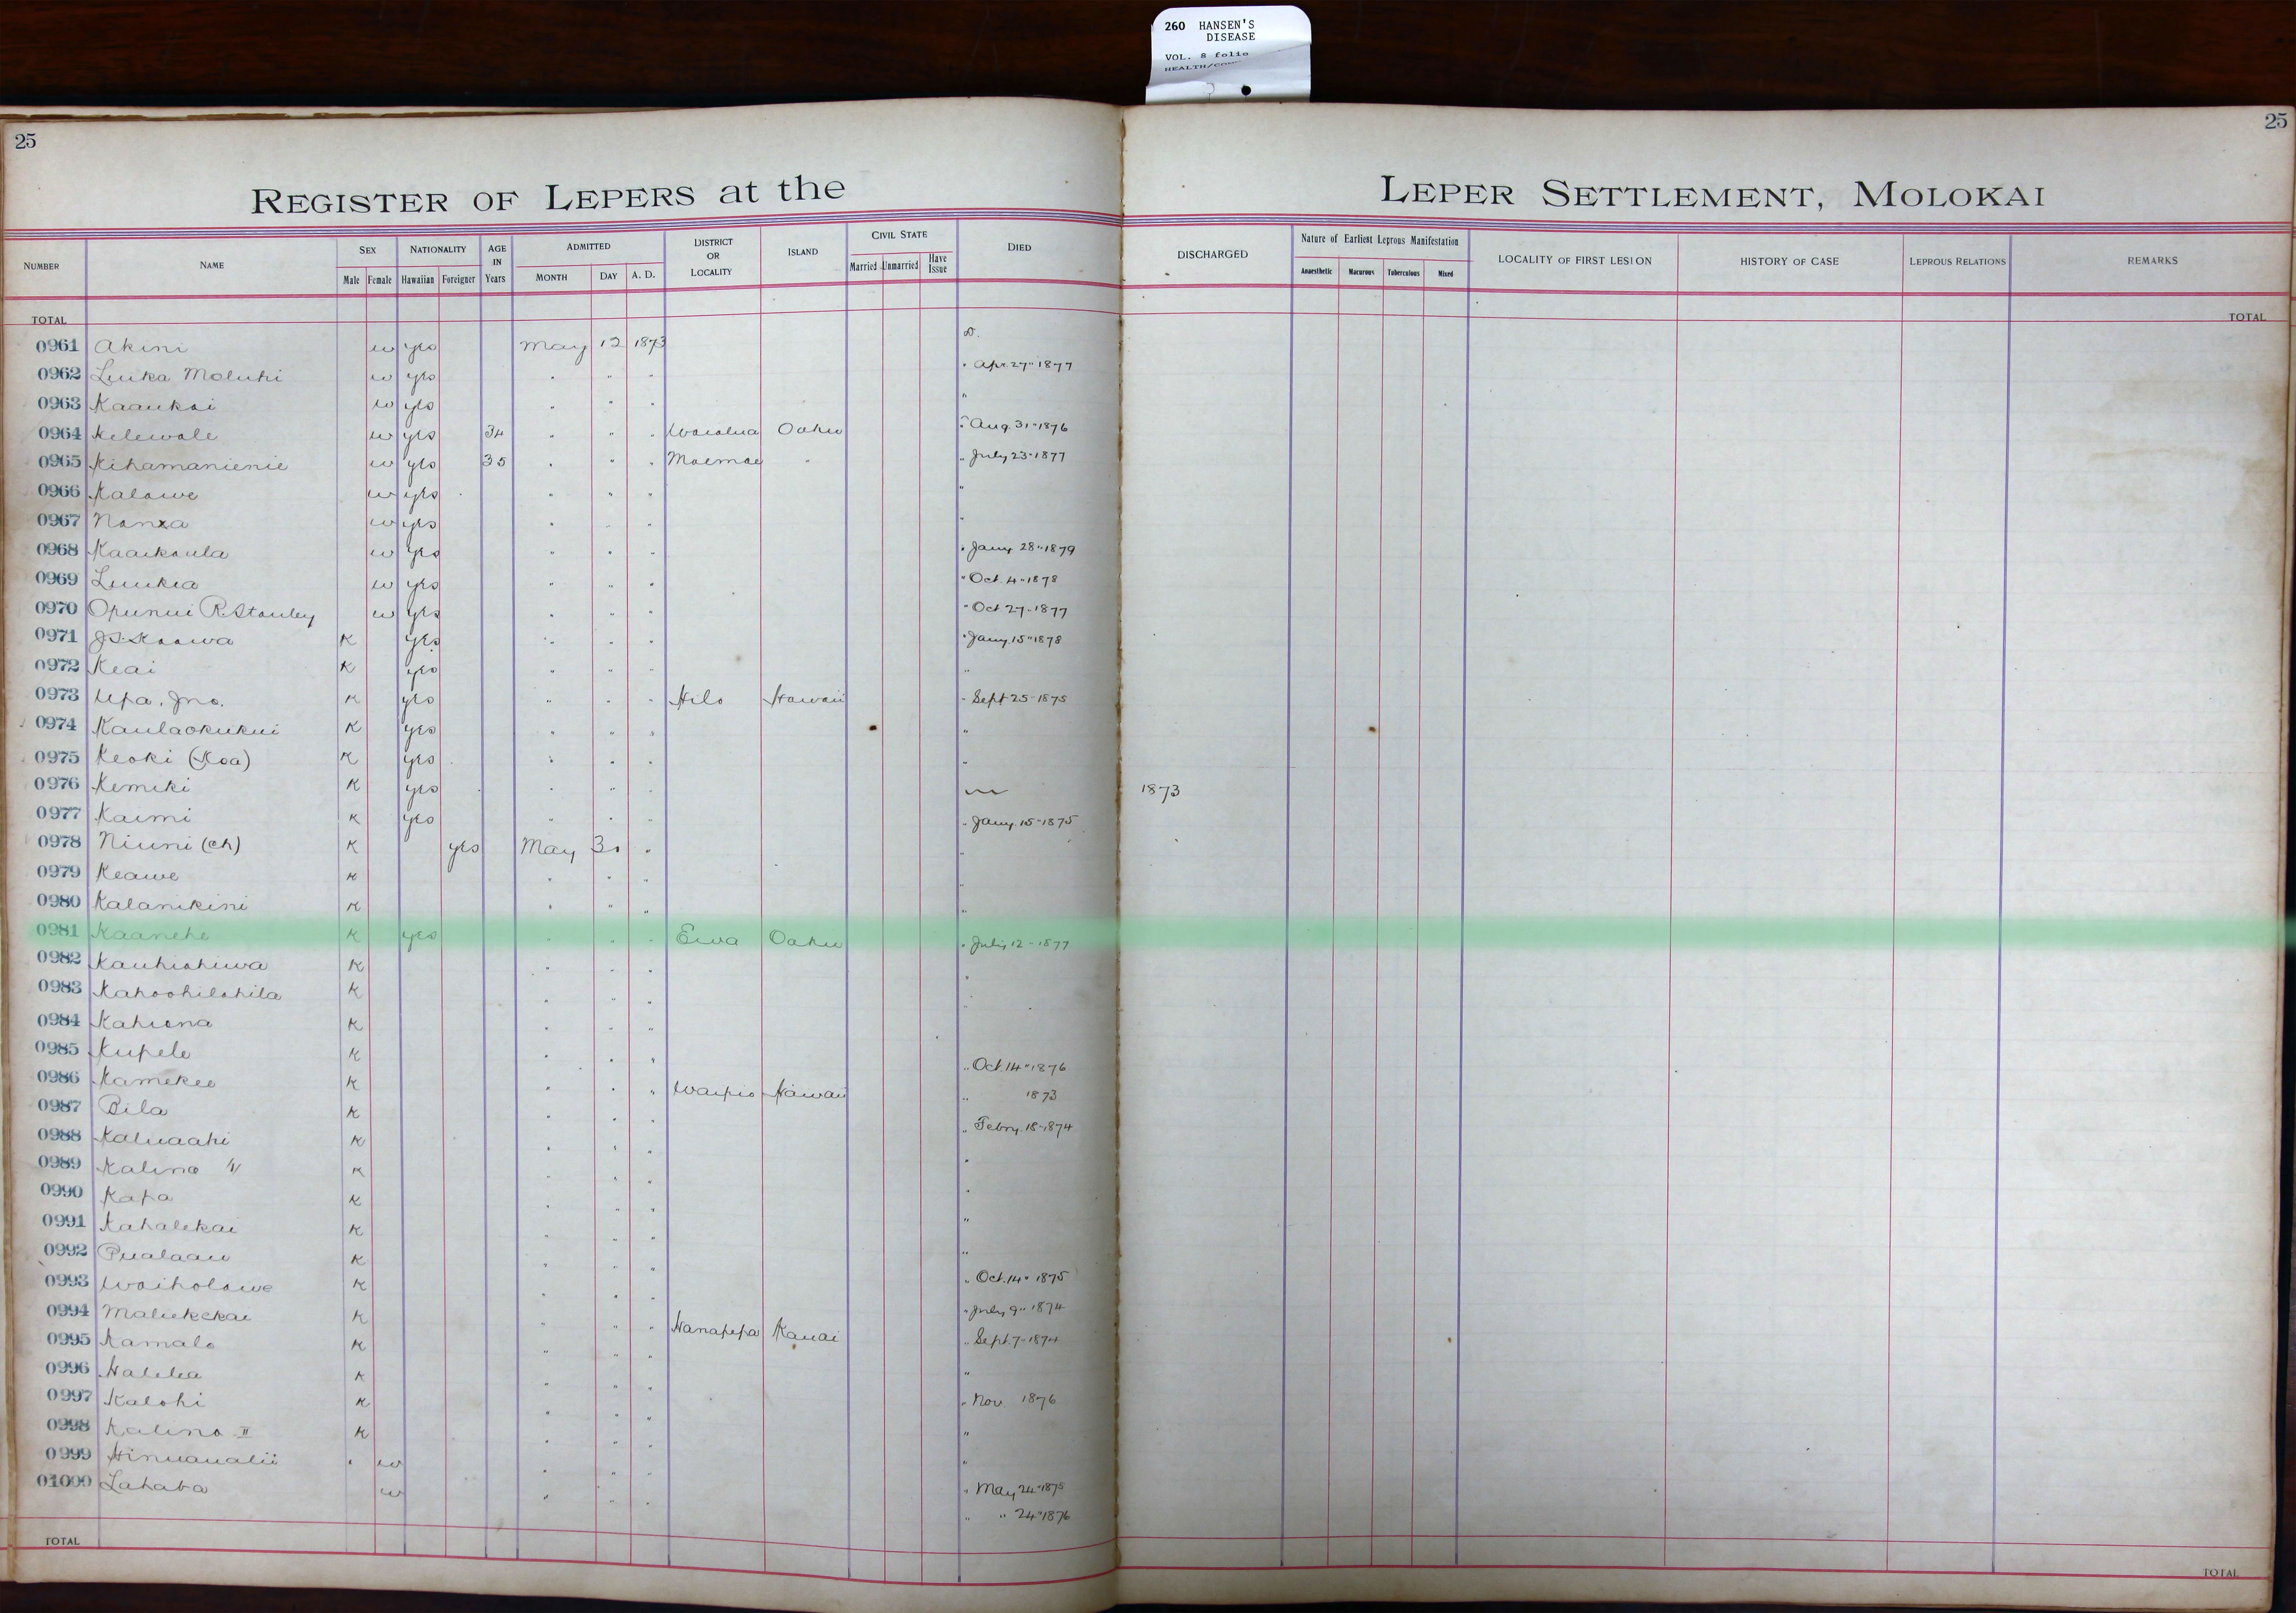 260 HANSEN'S
DISEASE
VOL. 8 folio
25
25
REGISTER OF LEPERS at the LEPER SETTLEMENT, MOLOKAI
NUMBER NAME SEX NATIONALITY AGE IN Years ADMITTED DISTRICT OR LOCALITY ISLAND CIVIL STATE DIED DISCHARGED Nature of Earliest Leprous Manifestation LOCALITY OF FIRST LESION HISTORY OF CASE LEPROUS RELATIONS REMARKS
Male Female Hawaiian Foreigner MONTH DAY A. D. Married Unmarried Have Issue Anaesthetic Macurous Tuberculous Mixed
TOTAL TOTAL
0961 Akini w yes May 12 1873 D.
0962 Luika Moluhi w yes " " " " Apr. 27" 1877
0963 Kaaukai w yes " " " "
0964 Kelewale w yes 34 " " " Waialua Oahu " Aug. 31" 1876
0965 Kihamanienie w yes 35 " " " Moemoe " " July 23" 1877
0966 Kalawe w yes " " " "
0967 w yes " " " "
0968 Kaaikaula w yes " " " " Jany. 28" 1879
0969 Luukia w yes " " " " Oct. 4" 1878
0970 Opunui R. Stanley w yes " " " " Oct 27" 1877
0971 J.S. Kaawa K yes " " " " Jany. 15" 1878
0972 Keai K yes " " " "
0973 Upa, Jno. K yes " " " Hilo Hawaii " Sept 25" 1875
0974 Kaulaokukui K yes " " " "
0975 Keoki (Koa) K yes " " " "
0976 Kemiki K yes " " " 1873
0977 Kaimi K yes " " " " Jany. 15" 1875
0978 Niuni (Ch) K yes May 30 " "
0979 Keawe K " " " "
0980 Kalanikini K " " " "
0981 Kaanehe K yes " " " Ewa Oahu " July 12" 1877
0982 Kauhiohiwa K " " " "
0983 Kahoohilohila K " " " "
0984 Kahiona K " " "
0985 Kupele K " " " " Oct. 14" 1876
0986 Kamekeo K " " " Waipio Hawaii " 1873
0987 Bila K " " " " Febry. 18" 1874
0988 Kaluaahi K " " " "
0989 Kalino K " " " "
0990 Kapa K " " " "
0991 Kahalekai K " " " "
0992 Pualaau K " " " " Oct. 14" 1875
0993 Waiholowe K " " " " July 9" 1874
0994 Maliekekai K " " " Hanapepa Kauai " Sept. 7" 1874
0995 Kamalo K " " " "
0996 Halelea K " " " " Nov. 1876
0997 Kalohi K " " " "
0998 Kalino II K " " " "
0999 Hinuaualii w " " " " May 24" 1875
01000 Lahaba w " " " " " 24" 1876
TOTAL TOTAL